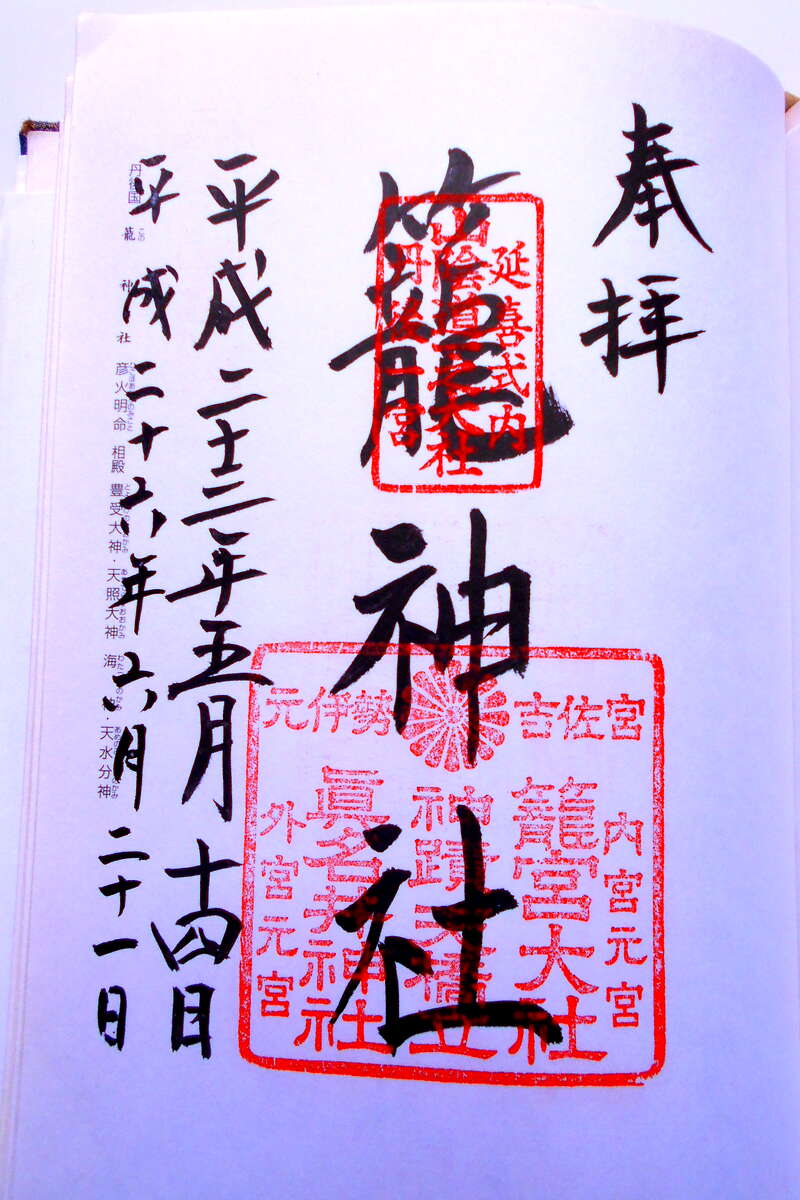 奉拝
籠神社
延喜式内
山陰道一之大社
丹後一宮
吉佐宮
元伊勢
内宮元宮
籠宮大社
神蹟天橋立
眞名井神社
外宮元宮
平成二十三年五月十四日
平成二十六年六月二十一日
丹後国
籠神社
彦火明命 相殿 豊受大神・天照大神 海神・天水分神